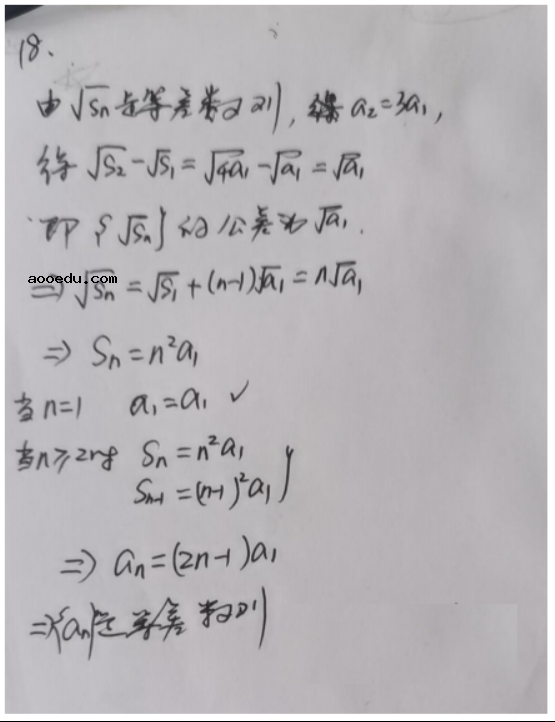 18.
由√Sn是等差数列, a₂=3a₁,
得√S₂-√S₁=√4a₁-√a₁=√a₁
即{√Sn}的公差为√a₁.
aooedu.com
⇒√Sn=√S₁+(n-1)√a₁=n√a₁
⇒ Sn=n²a₁
当n=1 a₁=a₁ ✓
当n≥2时 Sn=n²a₁
Sn-1=(n-1)²a₁}
⇒ an=(2n-1)a₁
⇒{an}是等差数列